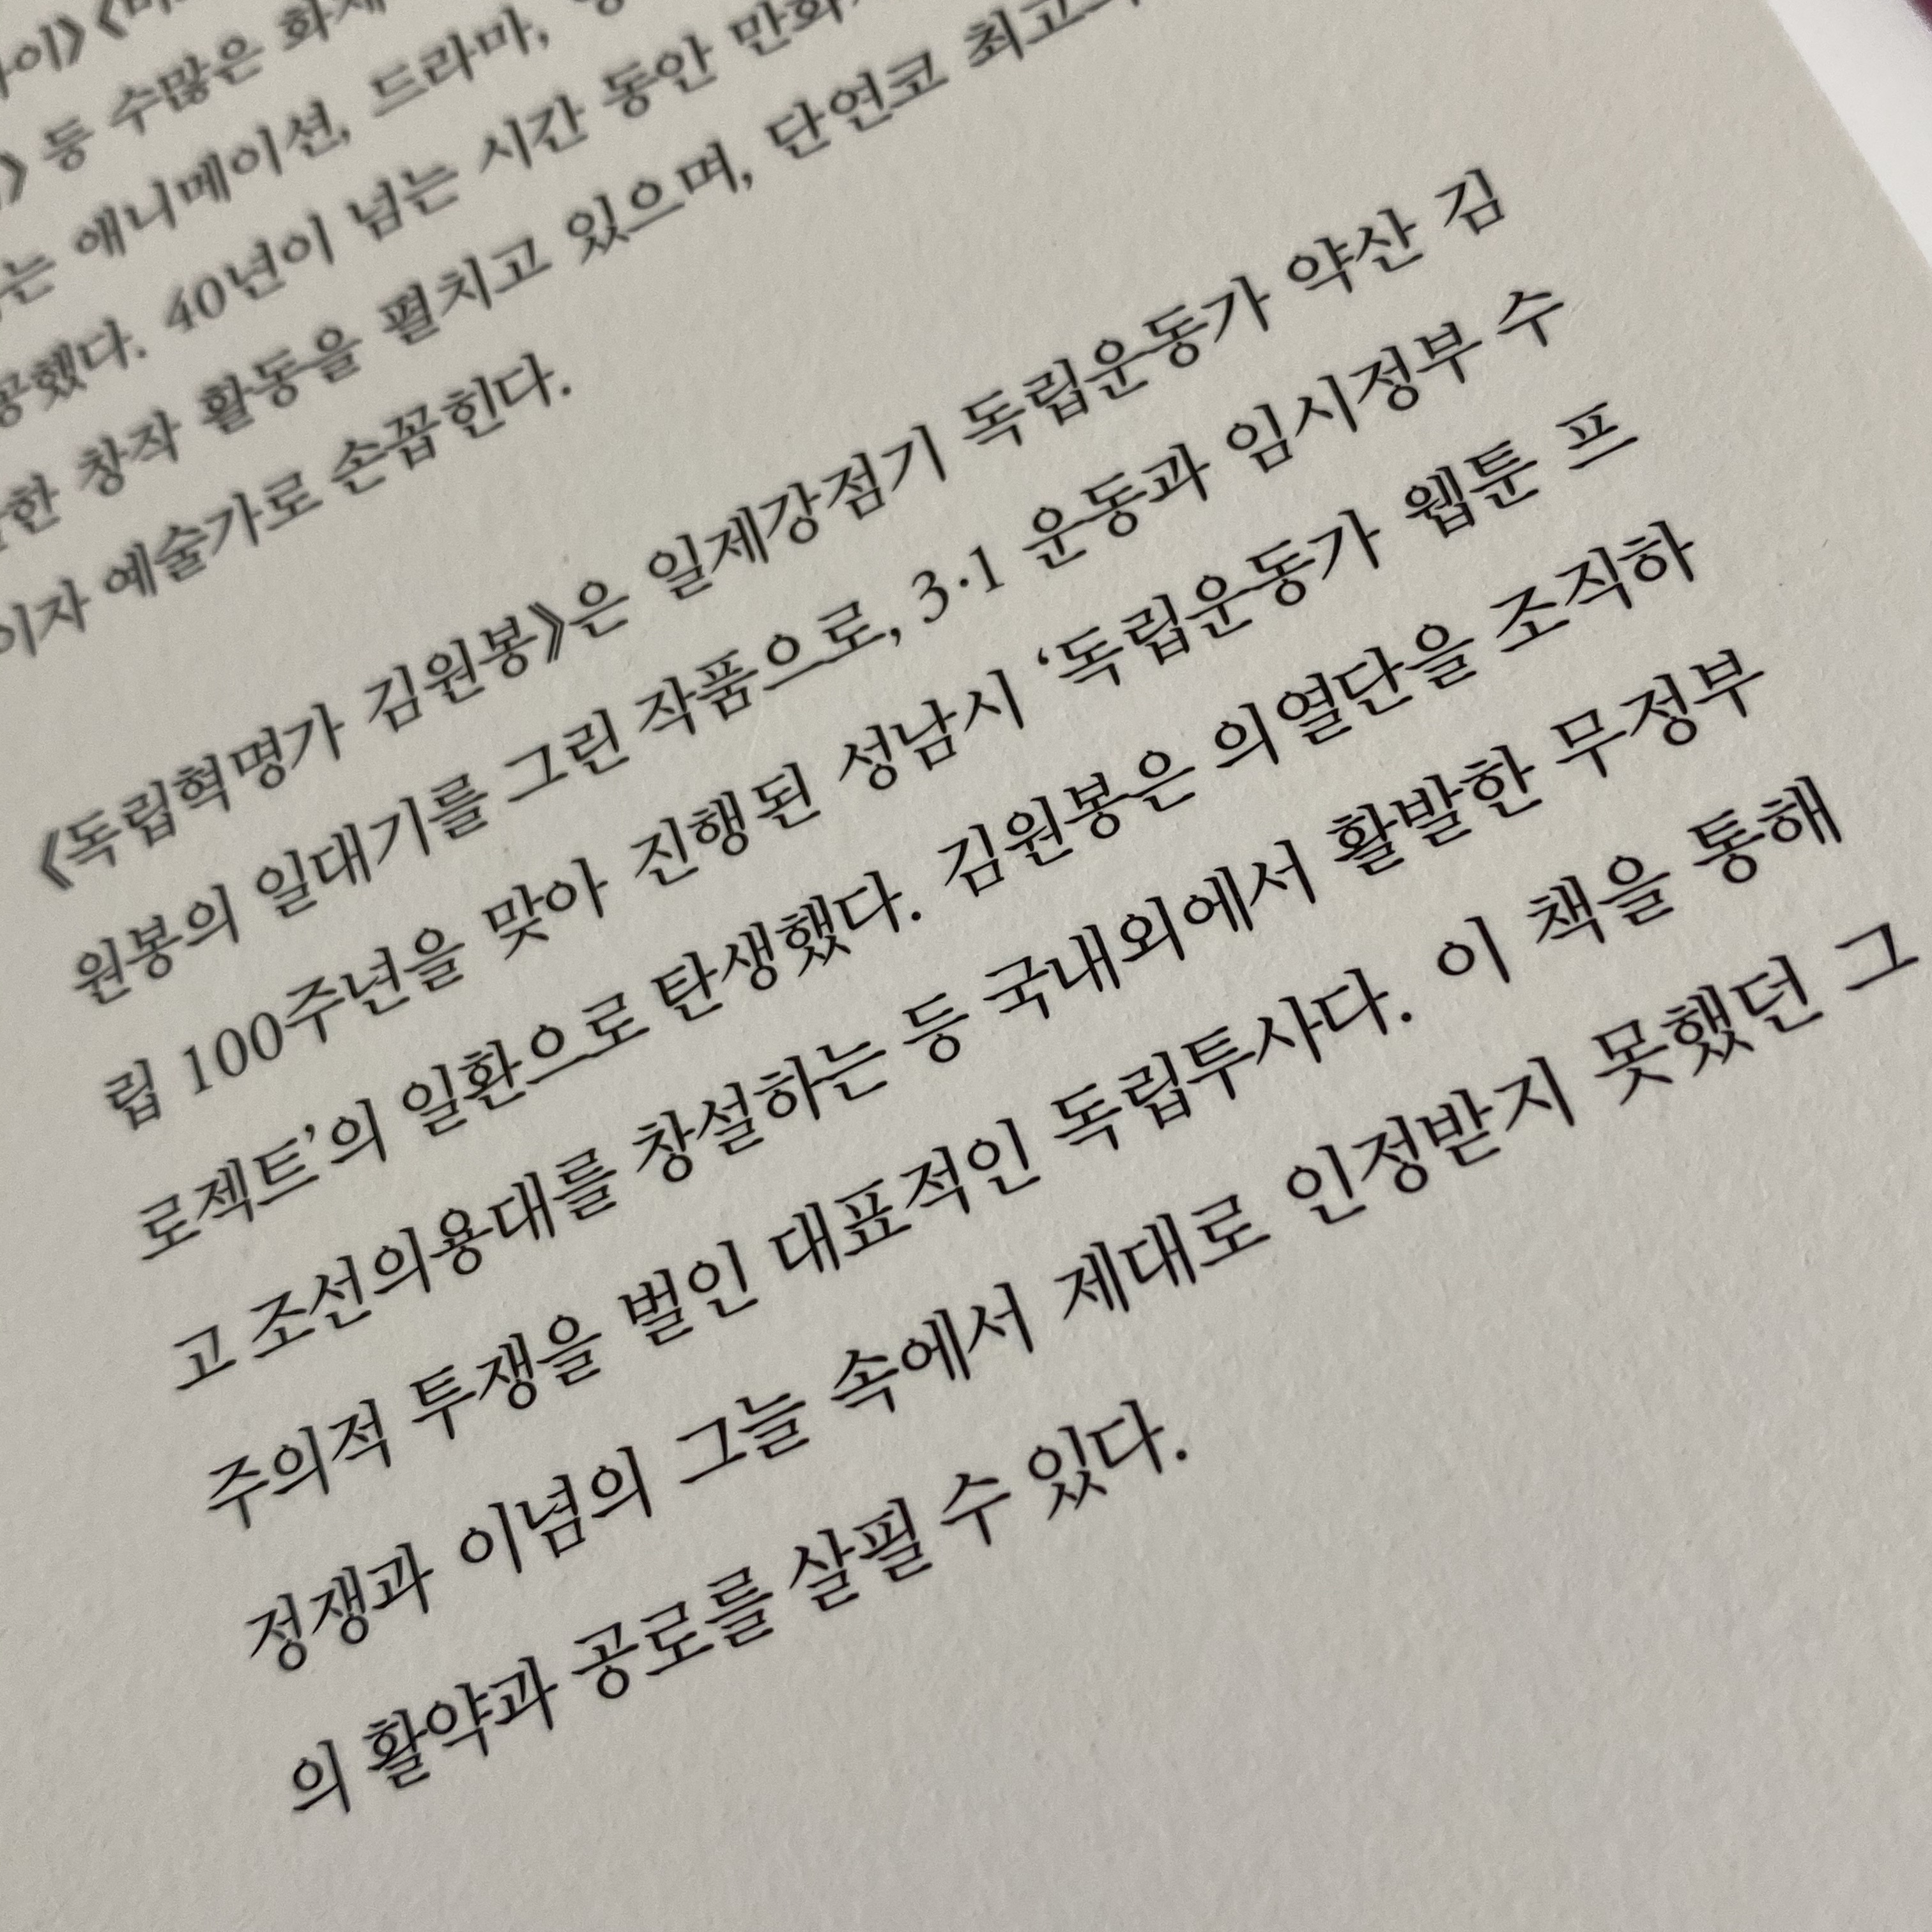 등 수많은
애니메이션, 드라마,
40년이 넘는 시간 동안
창작 활동을 펼치고 있으며, 단연코
예술가로 손꼽힌다.
《독립혁명가 김원봉》은 일제강점기 독립운동가 약산 김
원봉의 일대기를 그린 작품으로, 3·1 운동과 임시정부 수
립 100주년을 맞아 진행된 성남시 ‘독립운동가 웹툰 프
로젝트’의 일환으로 탄생했다. 김원봉은 의열단을 조직하
고 조선의용대를 창설하는 등 국내외에서 활발한 무정부
주의적 투쟁을 벌인 대표적인 독립투사다. 이 책을 통해
정쟁과 이념의 그늘 속에서 제대로 인정받지 못했던 그
의 활약과 공로를 살필 수 있다.